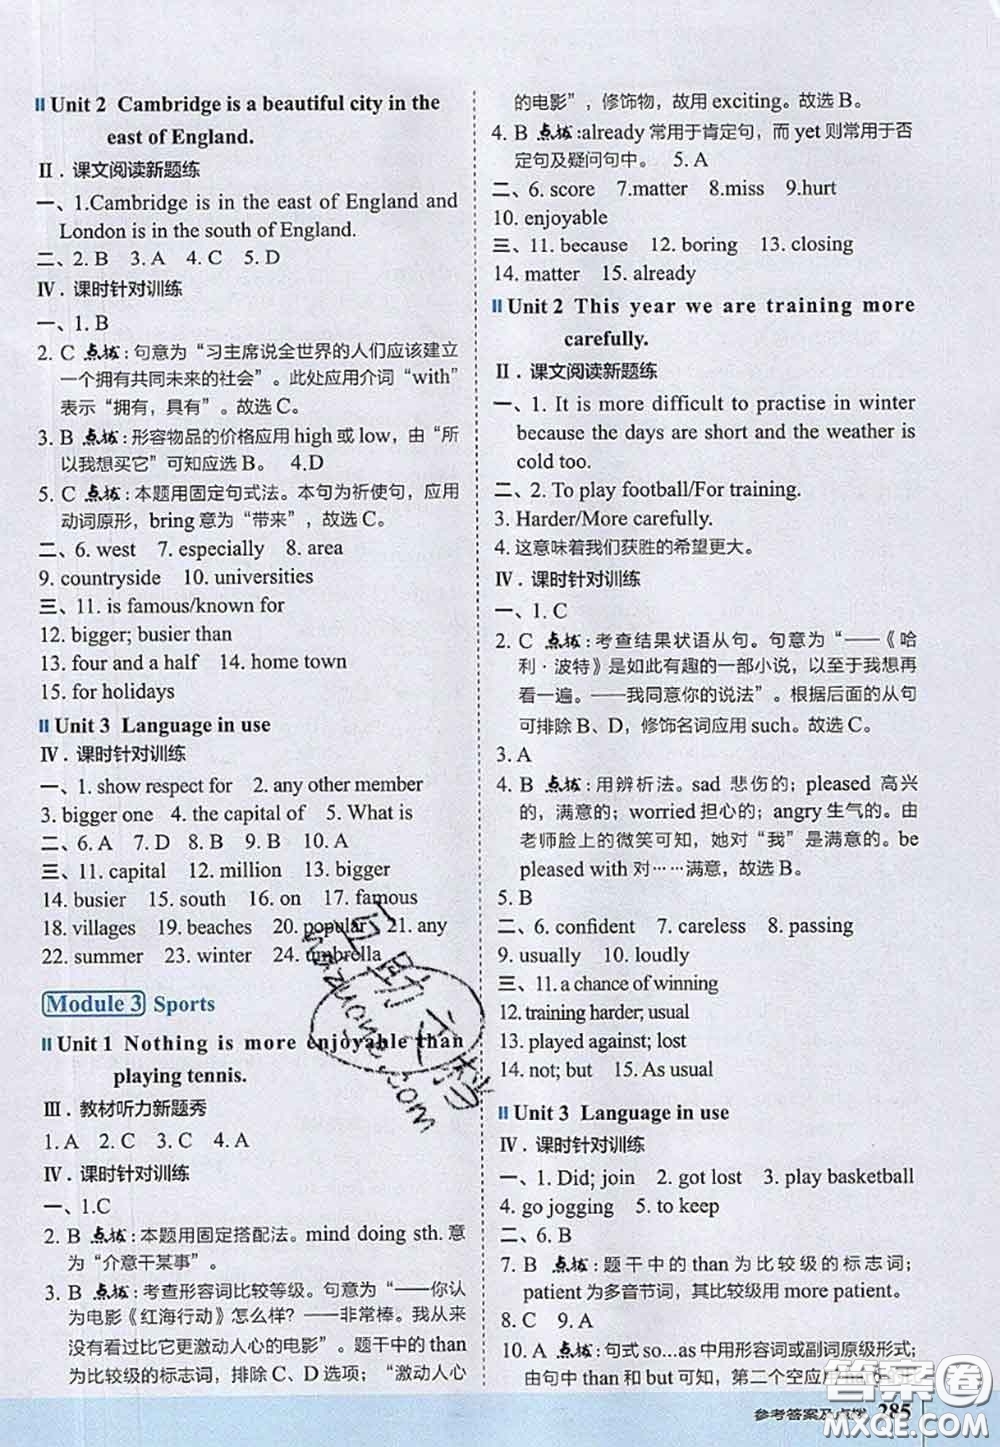 Unit 2 Cambridge is a beautiful city in the
east of England.
Ⅱ.课文阅读新题练
一、1.Cambridge is in the east of England and
London is in the south of England.
二、2. B 3. A 4. C 5. D
Ⅳ.课时针对训练
一、1. B
2. C 点拨:句意为“习主席说全世界的人们应该建立
一个拥有共同未来的社会”。此处应用介词“with”
表示“拥有,具有”。故选C。
3. B 点拨:形容物品的价格应用 high 或 low,由“所
以我想买它”可知应选 B。 4.D
5. C 点拨:本题用固定句式法。本句为祈使句,应用
动词原形,bring 意为“带来”,故选C。
二、6. west 7. especially 8. area
9. countryside 10. universities
三、11. is famous/known for
12. bigger; busier than
13. four and a half 14. home town
15. for holidays
Unit 3 Language in use
Ⅳ.课时针对训练
一、1. show respect for 2. any other member
3. bigger one 4. the capital of 5. What is
二、6. A 7. D 8. A 9. B 10. A
三、11. capital 12. million 13. bigger
14. busier 15. south 16. on 17. famous
18. villages 19. beaches 20. popular 21. any
22. summer 23. winter 24. umbrella
Module 3 Sports
Unit 1 Nothing is more enjoyable than
playing tennis.
Ⅲ.教材听力新题秀
1. A 2. C 3. C 4. A
Ⅳ.课时针对训练
一、1.C
2. B 点拨:本题用固定搭配法。mind doing sth. 意
为“介意干某事”。
3. B 点拨:考查形容词比较等级。句意为“——你认
为电影《红海行动》怎么样?——非常棒。我从来
没有看过比它更激动人心的电影”。题干中的 than
为比较级的标志词,排除 C、D 选项;“激动人心
的电影”,修饰物,故用 exciting。故选 B。
4. B 点拨:already 常用于肯定句,而 yet 则常用于否
定句及疑问句中。 5. A
二、6. score 7.matter 8.miss 9.hurt
10. enjoyable
三、11. because 12. boring 13. closing
14. matter 15. already
Unit 2 This year we are training more
carefully.
Ⅱ.课文阅读新题练
一、1. It is more difficult to practise in winter
because the days are short and the weather is
cold too.
二、2. To play football/For training.
3. Harder/More carefully.
4. 这意味着我们获胜的希望更大。
Ⅳ.课时针对训练
一、1. C
2. C 点拨:考查结果状语从句。句意为“——《哈
利·波特》是如此有趣的一部小说,以至于我想再
看一遍。——我同意你的说法”。根据后面的从句
可排除 B、D,修饰名词应用 such。故选 C。
3. A
4. B 点拨:用辨析法。sad 悲伤的;pleased 高兴
的,满意的;worried 担心的;angry 生气的。由
老师脸上的微笑可知,她对“我”是满意的。be
pleased with 对……满意,故选 B。
5. B
二、6. confident 7. careless 8. passing
9. usually 10. loudly
三、11. a chance of winning
12. training harder; usual
13. played against; lost
14. not; but 15. As usual
Unit 3 Language in use
Ⅳ.课时针对训练
一、1. Did; join 2. got lost 3. play basketball
4. go jogging 5. to keep
二、6. B
7. B 点拨:题干中的 than 为比较级的标志词;
patient 为多音节词,其比较级用 more patient.
8. C 9. A
10. A 点拨:句式 so...as 中用形容词或副词原级形式;
由句中 than 和 but 可知,第二个空应
参考答案及点拨 285
答案圈
MXQE.COM